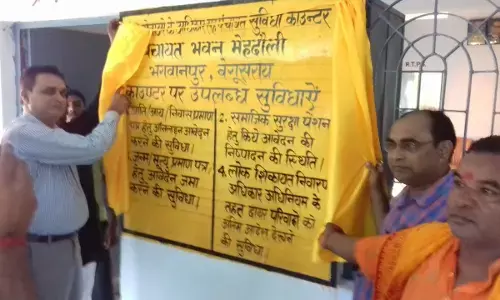 पंचायत सुविधा काउन्टर
पंचायत भवन मेहदौली
भगवानपुर, बेगूसराय
काउण्टर पर उपलब्ध सुविधाऐं
जाति/आय/निवास प्रमाण
पत्र हेतु ऑनलाइन आवेदन
करने की सुविधा।
जन्म/मृत्यु प्रमाण पत्र,
हेतु आवेदन जमा
करने की सुविधा।
2. सामाजिक सुरक्षा पेंशन
हेतु किये आवेदन की
निष्पादन की स्थिति।
4. लोक शिकायत निवारण
अधिकार अधिनियम के
तहत दायर परिवादों को
अन्तिम आदेश देखने
की सुविधा।